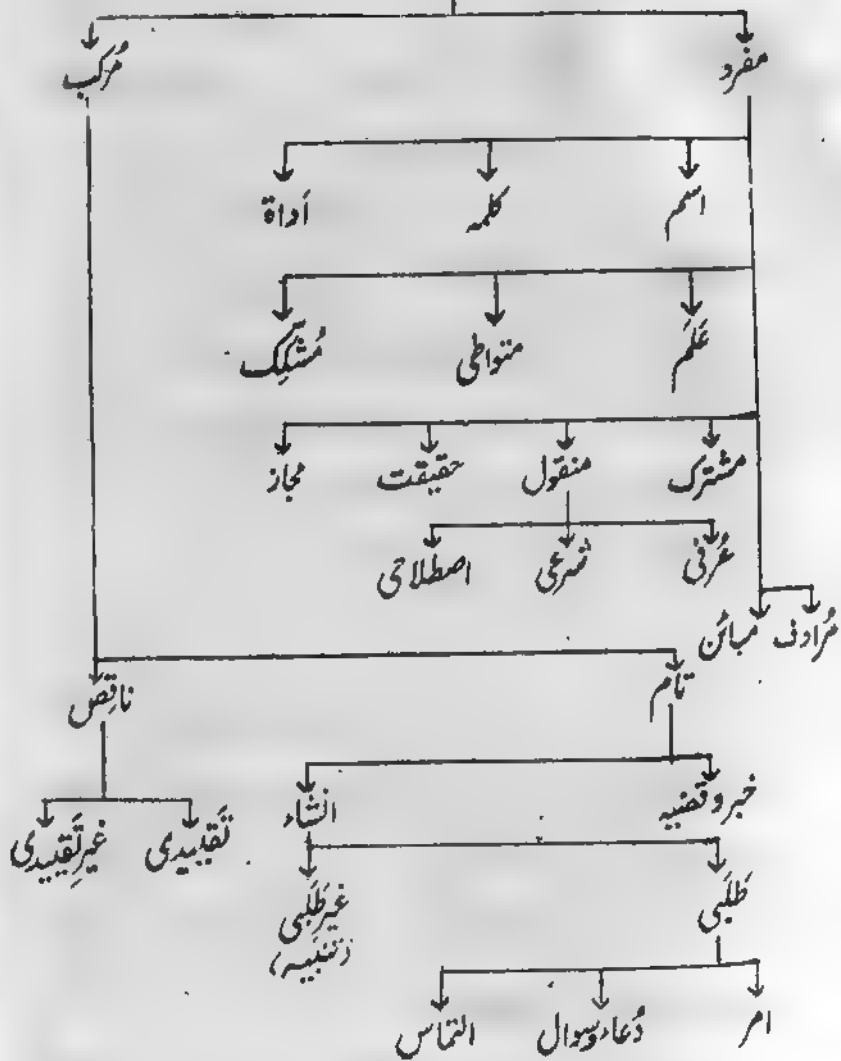 مفرد مُرکب
اسم کلمہ اَداۃ
عَلَم متواطی مُشکِّک
مشترک منقول حقیقت مجاز
عُرفی شرعی اصطلاحی
مُرادف مبائن
تام ناقِص
خبر و قضیہ انشاء تَقییدی غیرِتَقییدی
طَلَبی غیرطَلَبی
(تنبیہ)
امر دُعاء وسوال التماس